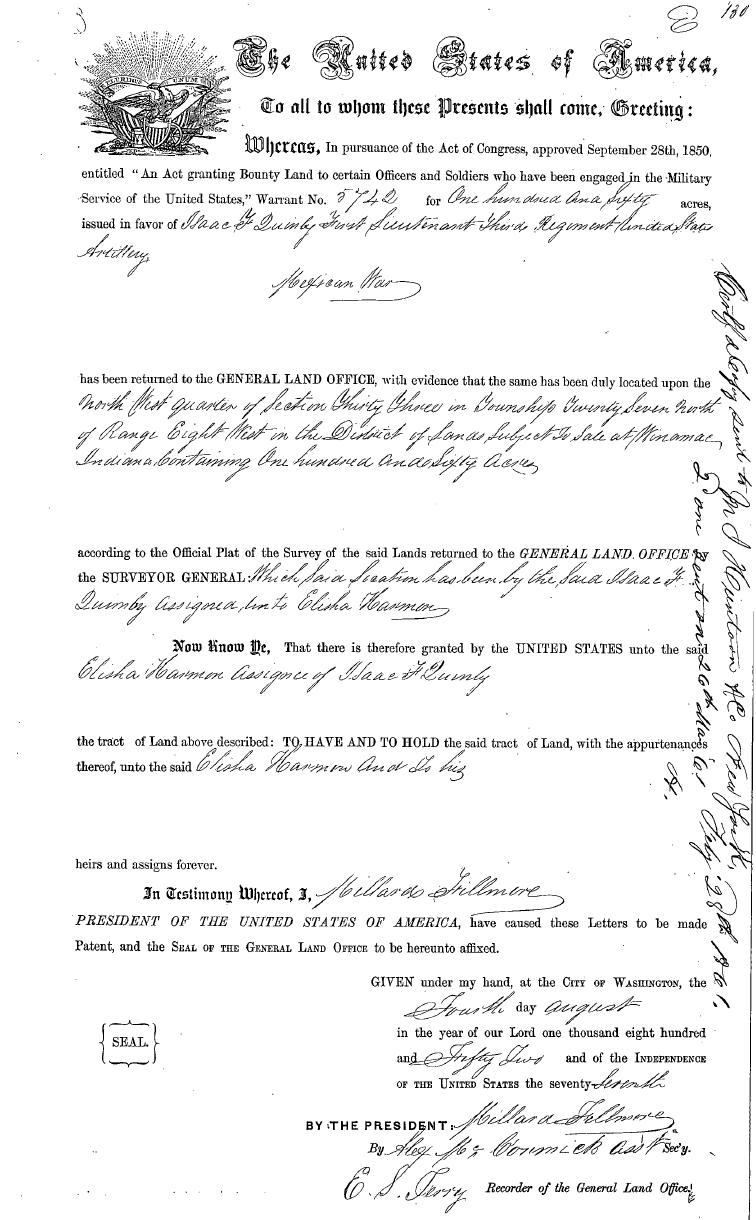 130
E PLURIBUS UNUM
The United States of America,
To all to whom these Presents shall come, Greeting:
Whereas, In pursuance of the Act of Congress, approved September 28th, 1850,
entitled "An Act granting Bounty Land to certain Officers and Soldiers who have been engaged in the Military
Service of the United States," Warrant No. 5742 for One hundred and Sixty acres,
issued in favor of Isaac F Quimby First Lieutenant Third Regiment United States
Artillery
Mexican War
has been returned to the GENERAL LAND OFFICE, with evidence that the same has been duly located upon the
North West quarter of Section Thirty Three in Township Twenty Seven North
of Range Eight West in the District of Lands Subject To Sale at Winamac
Indiana, Containing One hundred and Sixty Acres
according to the Official Plat of the Survey of the said Lands returned to the GENERAL LAND OFFICE by
the SURVEYOR GENERAL: Which Said Location has been by the Said Isaac F
Quimby Assigned, unto Elisha Harmon
Now Know Ye, That there is therefore granted by the UNITED STATES unto the said
Elisha Harmon Assignee of Isaac F Quimby
the tract of Land above described: TO HAVE AND TO HOLD the said tract of Land, with the appurtenances
thereof, unto the said Elisha Harmon And To his
heirs and assigns forever.
In Testimony Whereof, I, Millard Fillmore
PRESIDENT OF THE UNITED STATES OF AMERICA, have caused these Letters to be made
Patent, and the SEAL OF THE GENERAL LAND OFFICE to be hereunto affixed.
GIVEN under my hand, at the CITY OF WASHINGTON, the
Fourth day August
in the year of our Lord one thousand eight hundred
and Fifty Two and of the INDEPENDENCE
OF THE UNITED STATES the seventy-Seventh
SEAL.
BY THE PRESIDENT: Millard Fillmore
By Alex McCormick Ass't Sec'y.
E. S. Terry Recorder of the General Land Office.
Certf'd Copy send to J Huntoon &Co New York, Feby 28th 1861.
one sent on 26th Mar 61